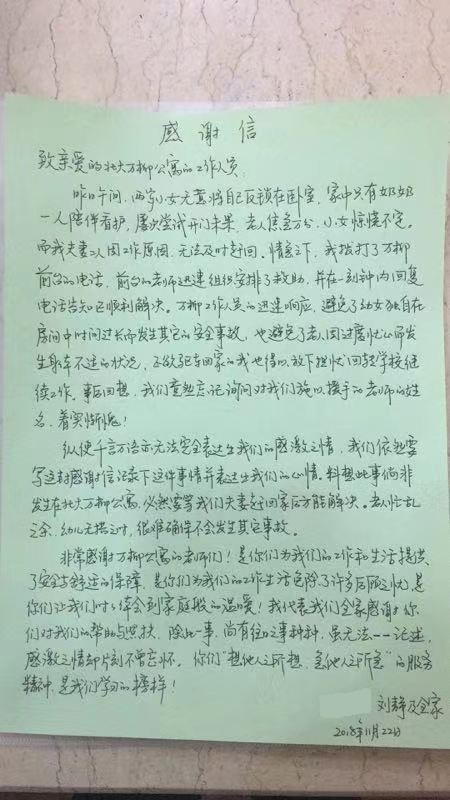 感谢信
致亲爱的北大万柳公寓的工作人员:
昨日午间,两岁小女无意将自己反锁在卧室,家中只有奶奶
一人陪伴看护,屡次尝试开门未果,老人焦急万分,小女惊慌不定。
而我夫妻二人因工作原因,无法及时赶回。情急之下,我拨打了万柳
前台的电话,前台的老师迅速组织安排了救助,并在一刻钟内回复
电话告知已顺利解决。万柳工作人员的迅速响应,避免了幼女独自在
房间中时间过长而发生其它的安全事故,也避免了老人因过度忧心而发
生身体不适的状况,正欲驱车回家的我也得以放下担忧回转学校继
续工作。事后回想,我们竟然忘记询问对我们施以援手的老师的姓
名,着实惭愧!
纵使千言万语亦无法完全表达出我们的感激之情,我们依然要
写这封感谢信记录下这件事情并表达出我们的心情。料想此事倘非
发生在北大万柳公寓,必然要等我们夫妻赶回家后方能解决。老人忙乱
之余,幼儿无措之时,很难确保不会发生其它事故。
非常感谢万柳公寓的老师们!是你们为我们的工作和生活提供
了安全与舒适的保障,是你们为我们的工作生活免除了许多后顾之忧,是
你们让我们时时体会到家庭般的温暖!我代表我们全家感谢你
们对我们的帮助与照扶,除此一事,尚有往日之事种种,虽无法一一记述,
感激之情却片刻不曾忘怀。你们“想他人之所想,急他人之所急”的服务
精神,是我们学习的榜样!
刘静及全家
2018年11月22日